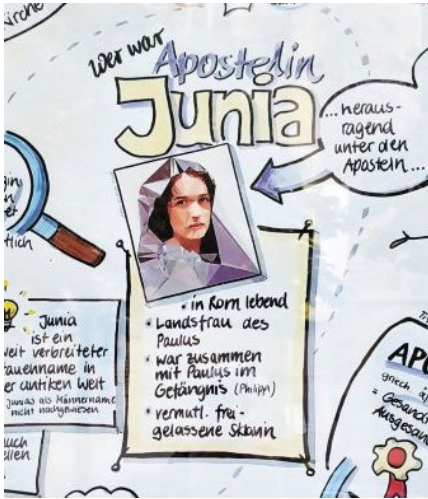 wer war
Apostelin
Junia
...heraus-
ragend
unter den
Aposteln...
• in Rom lebend
• Landsfrau des
Paulus
• war zusammen
mit Paulus im
Gefängnis (Philippi)
• vermutl. frei-
gelassene Sklavin
Junia
ist ein
weit verbreiteter
Frauenname in
der antiken Welt
Junias als Männername
nicht nachgewiesen
griech
= Gesandt
Ausgesan